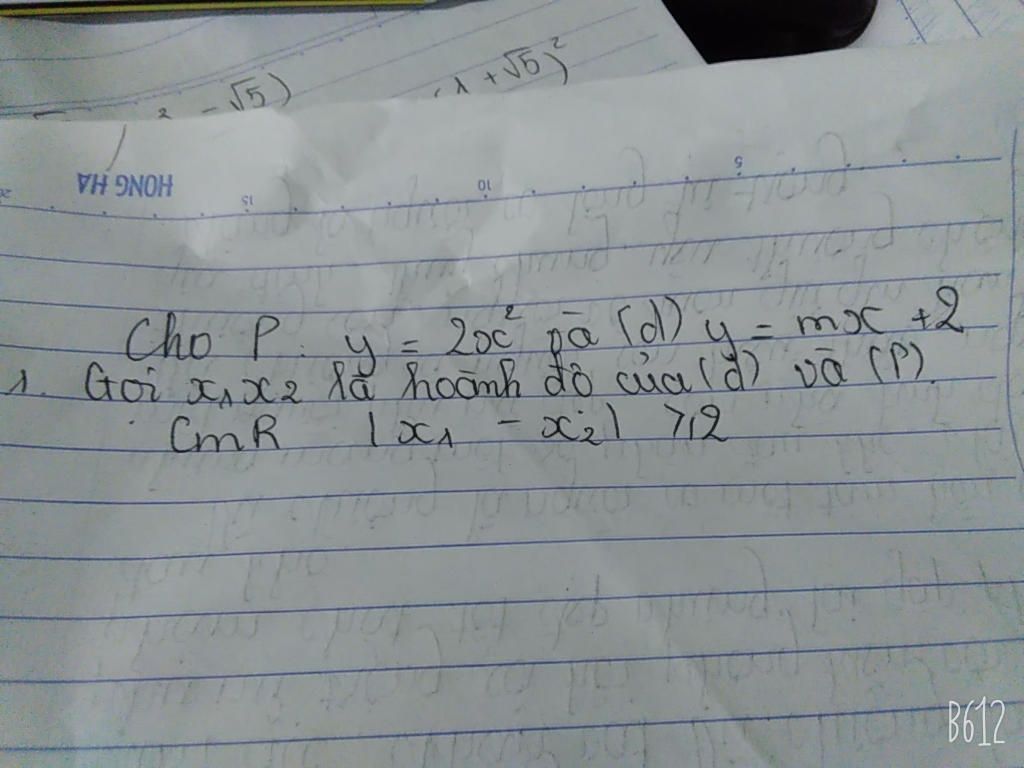 ² - √5)
(1 + √5)²
HONG HA
5
10
15
20
Cho P: y = 2x² và (d) y = mx + 2
1. Gọi x₁ x₂ là hoành độ của (d) và (P).
CmR |x₁ - x₂| ≥ 2
B612